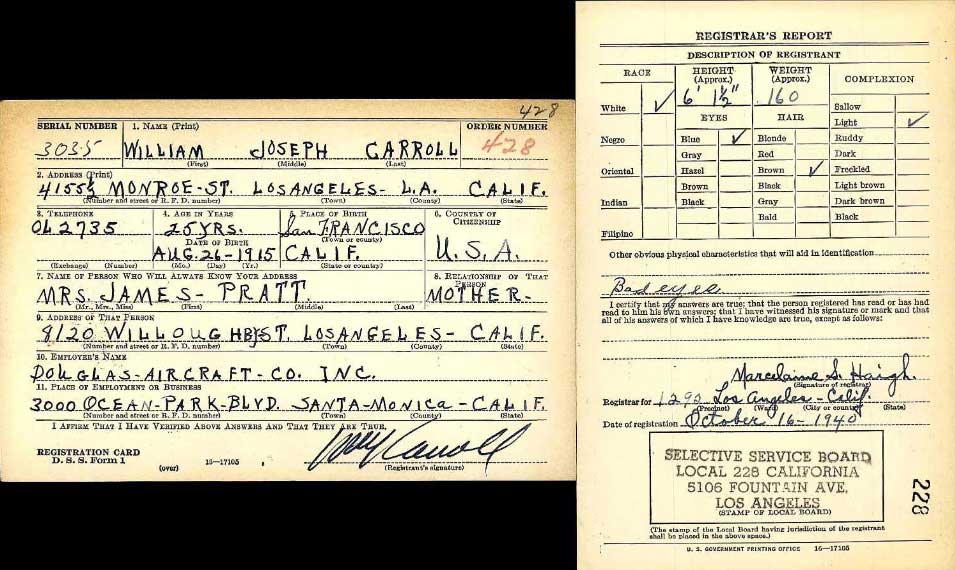 428
SERIAL NUMBER 1. NAME (Print) ORDER NUMBER
3035 WILLIAM JOSEPH CARROLL 428
(First) (Middle) (Last)
2. ADDRESS (Print)
4155½ MONROE-ST. LOSANGELES- L.A. CALIF.
(Number and street or R. F. D. number) (Town) (County) (State)
3. TELEPHONE 4. AGE IN YEARS 5. PLACE OF BIRTH 6. COUNTRY OF CITIZENSHIP
OL 2735 25 YRS. San FRANCISCO
(Town or county)
DATE OF BIRTH
AUG. 26-1915 CALIF. U.S.A.
(Exchange) (Number) (Mo.) (Day) (Yr.) (State or country)
7. NAME OF PERSON WHO WILL ALWAYS KNOW YOUR ADDRESS 8. RELATIONSHIP OF THAT PERSON
MRS. JAMES- PRATT. MOTHER-
(Mr., Mrs., Miss) (First) (Middle) (Last)
9. ADDRESS OF THAT PERSON
8120 WILLOUGHBY ST. LOSANGELES- CALIF.
(Number and street or R. F. D. number) (Town) (County) (State)
10. EMPLOYER'S NAME
DOUGLAS-AIRCRAFT-CO. INC.
11. PLACE OF EMPLOYMENT OR BUSINESS
3000 OCEAN-PARK-BLVD. SANTA-MONICA-CALIF.
(Number and street or R. F. D. number) (Town) (County) (State)
I AFFIRM THAT I HAVE VERIFIED ABOVE ANSWERS AND THAT THEY ARE TRUE.
REGISTRATION CARD
D. S. S. Form 1
(over) 16—17105
Carroll
(Registrant's signature)
REGISTRAR'S REPORT
DESCRIPTION OF REGISTRANT
RACE HEIGHT (Approx.) WEIGHT (Approx.) COMPLEXION
White ✓ 6' 1½" 160 Sallow
EYES HAIR Light ✓
Negro Blue ✓ Blonde Ruddy
Gray Red Dark
Oriental Hazel Brown ✓ Freckled
Brown Black Light brown
Indian Black Gray Dark brown
Bald Black
Filipino
Other obvious physical characteristics that will aid in identification
Bad eyes
I certify that my answers are true; that the person registered has read or has had
read to him his own answers; that I have witnessed his signature or mark and that
all of his answers of which I have knowledge are true, except as follows:
Marcelaine S. Haigh.
(Signature of registrar)
Registrar for 1292 Los Angeles - Calif.
(Precinct) (Ward) (City or county) (State)
Date of registration October 16-1940
SELECTIVE SERVICE BOARD
LOCAL 228 CALIFORNIA
5106 FOUNTAIN AVE,
LOS ANGELES
(STAMP OF LOCAL BOARD)
228
(The stamp of the Local Board having jurisdiction of the registrant
shall be placed in the above space.)
U. S. GOVERNMENT PRINTING OFFICE 16—17105